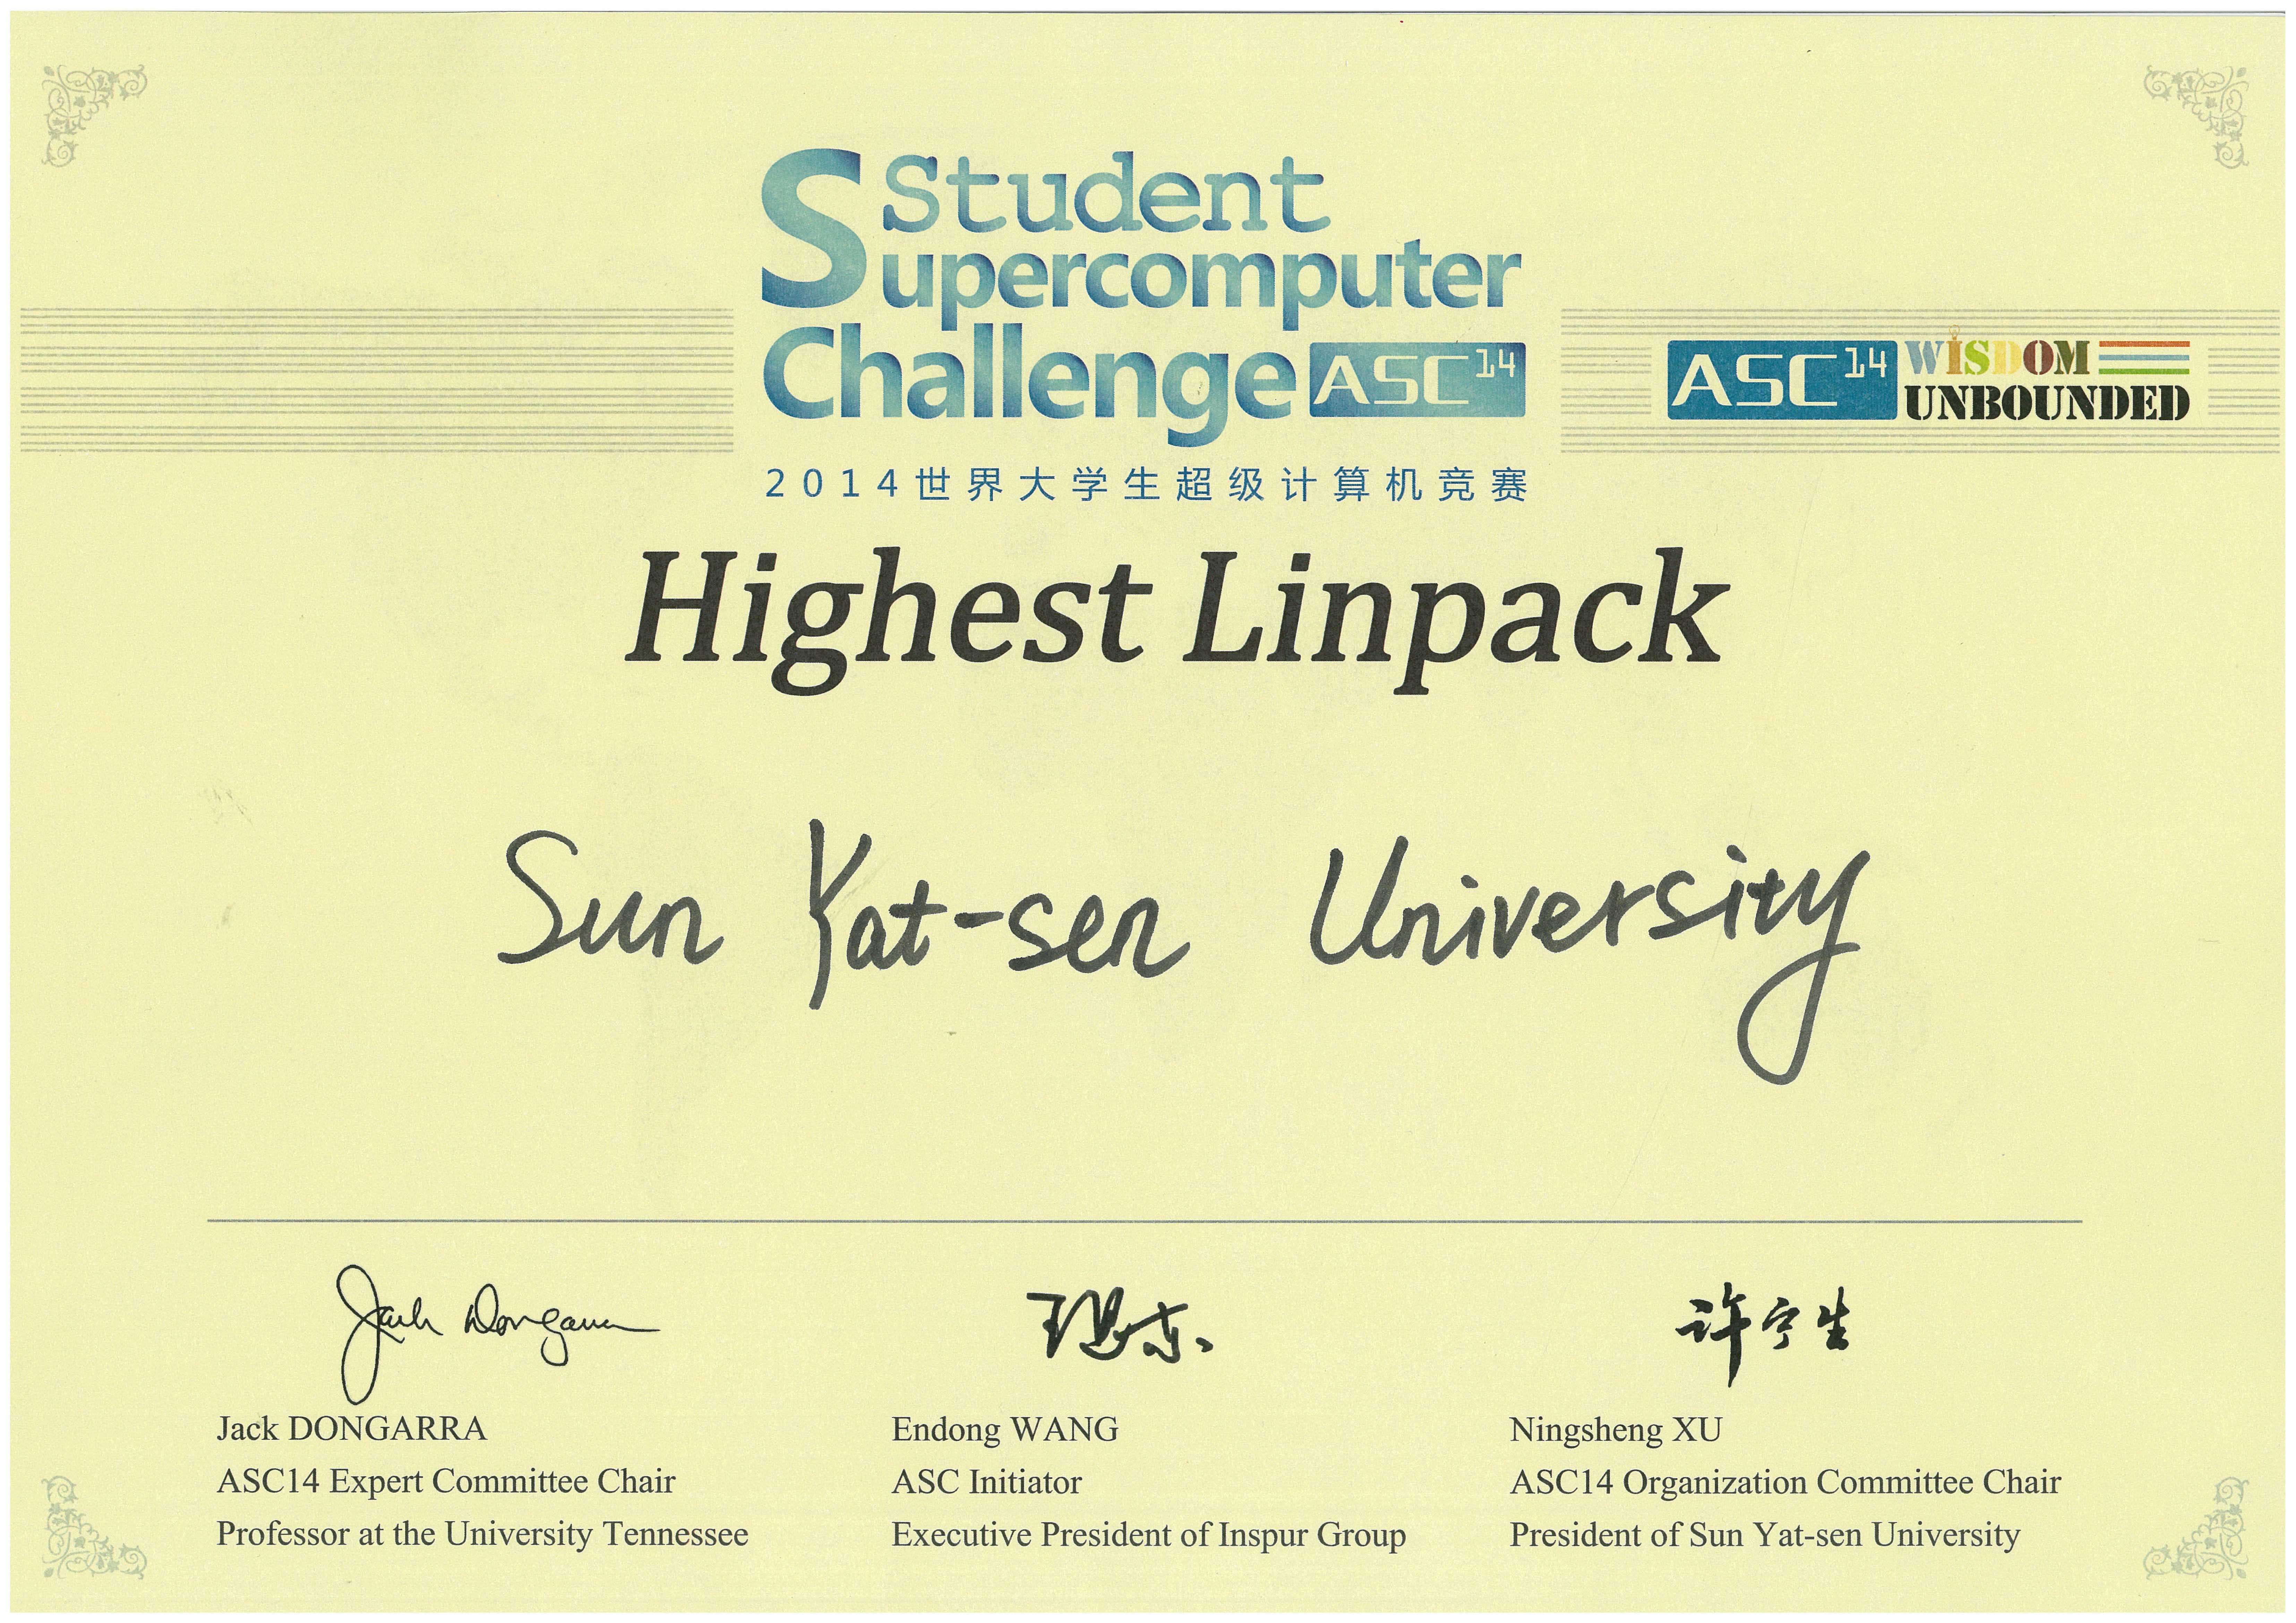 Student
Supercomputer
Challenge ASC14
ASC14 WISDOM
UNBOUNDED
2014世界大学生超级计算机竞赛
Highest Linpack
Sun Yat-sen University
Jack Dongarra 王恩东 许宁生
Jack DONGARRA
ASC14 Expert Committee Chair
Professor at the University Tennessee
Endong WANG
ASC Initiator
Executive President of Inspur Group
Ningsheng XU
ASC14 Organization Committee Chair
President of Sun Yat-sen University